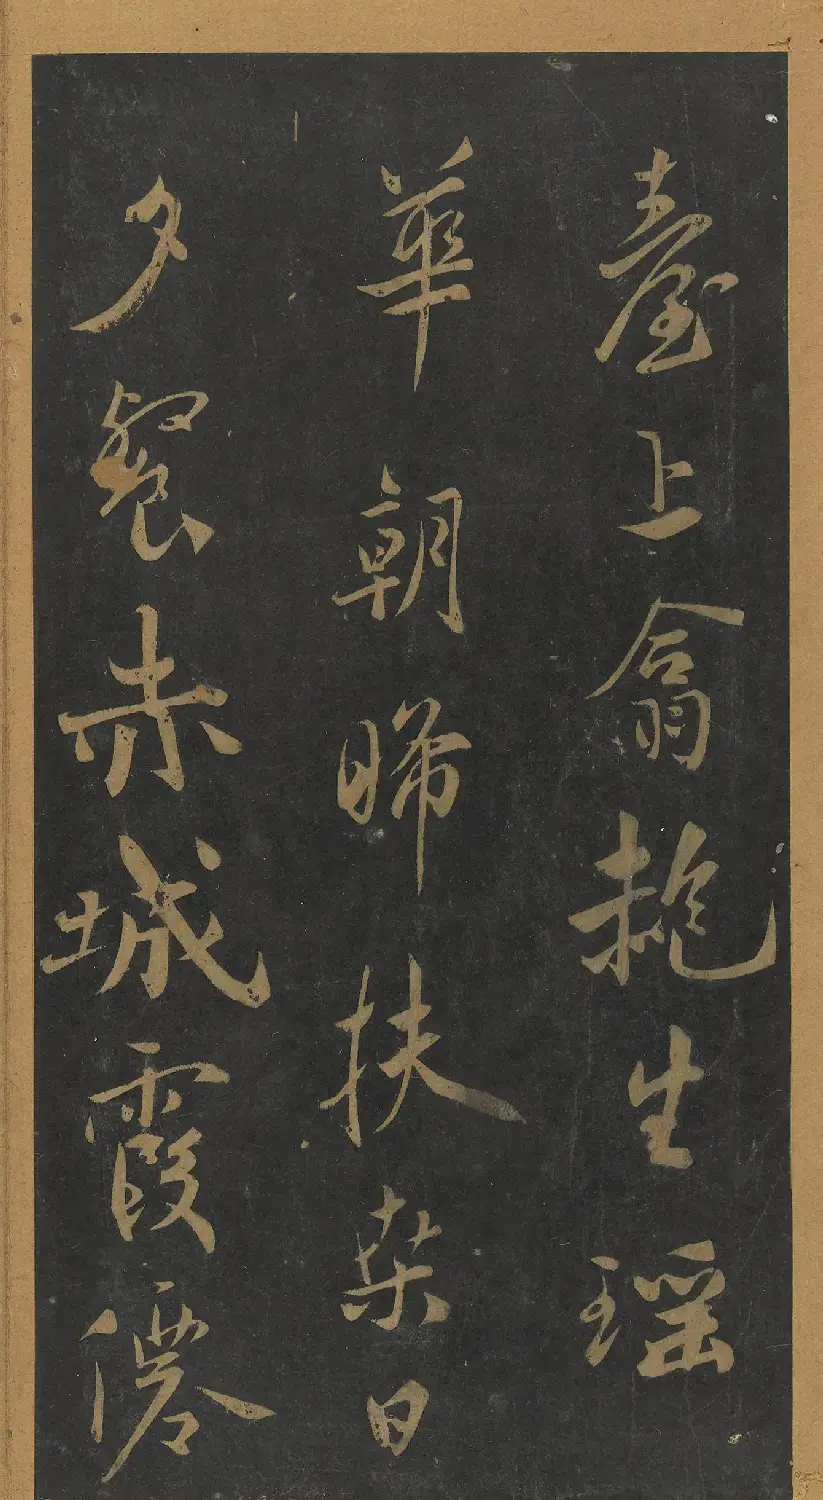 臺上翕赩生瑶
華朝晞扶桒日
夕餐赤城霞僊